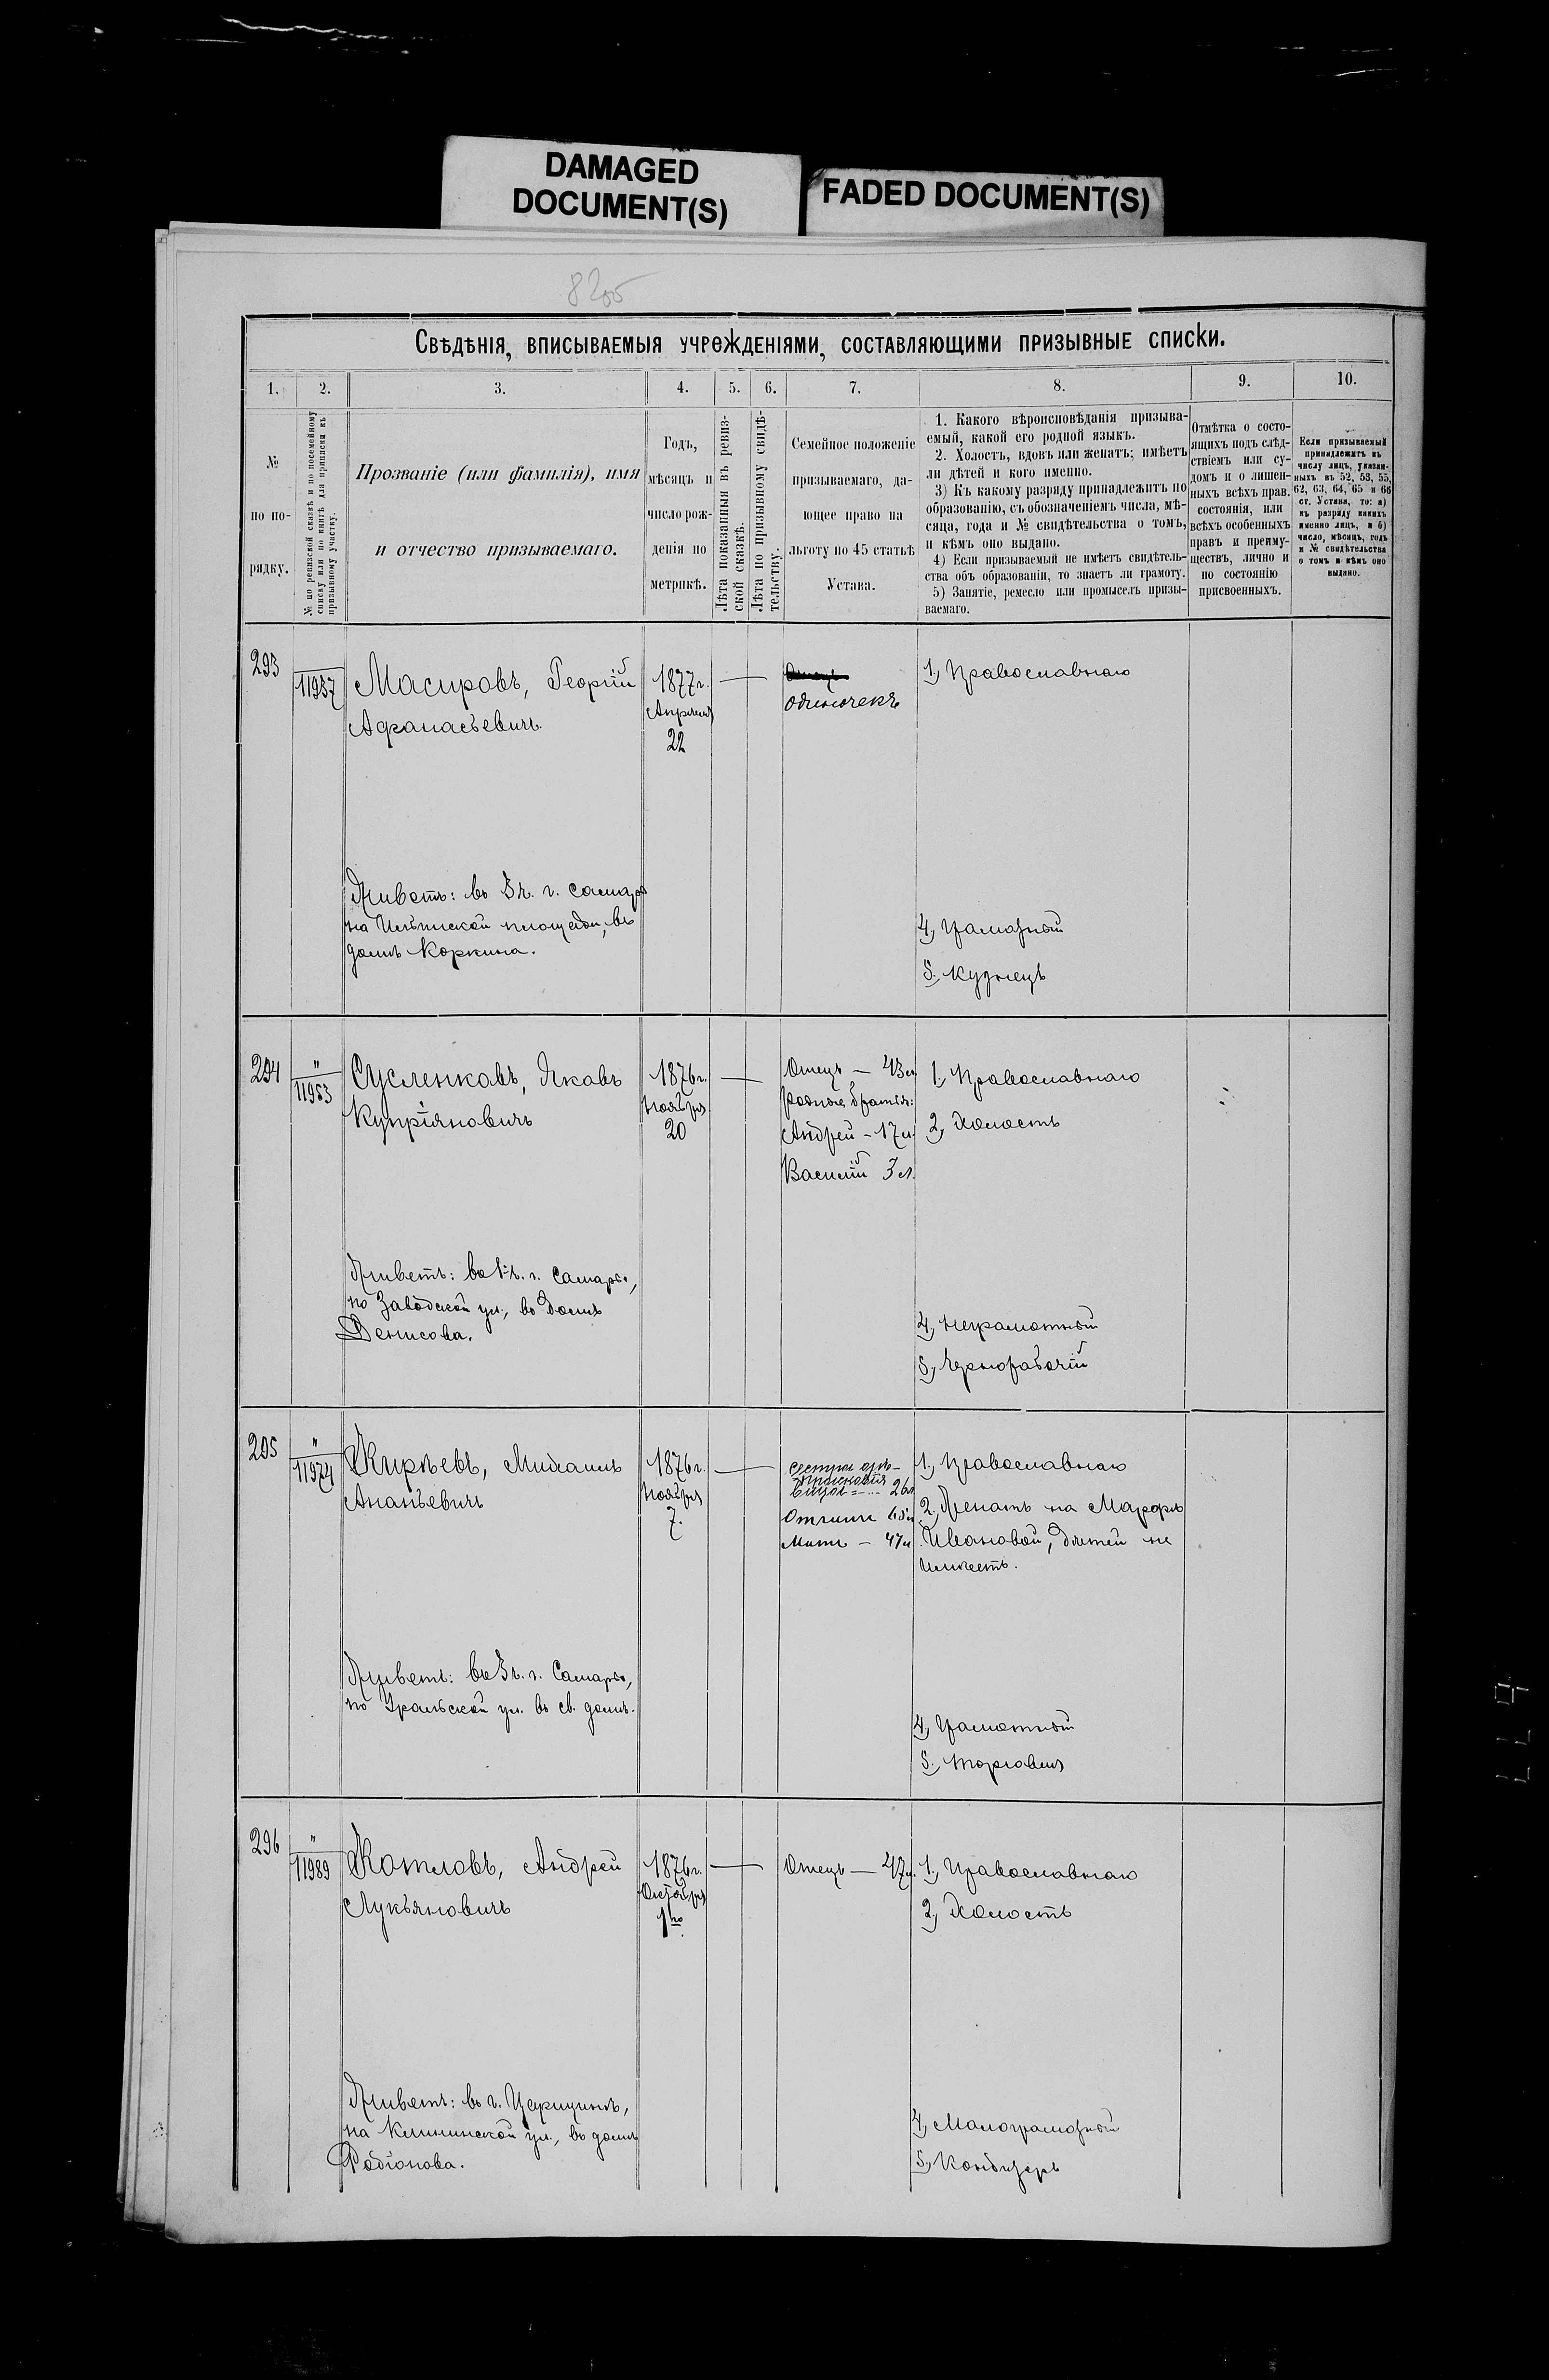 DAMAGED
DOCUMENT(S)
FADED DOCUMENT(S)
Свѣдѣнія, вписываемыя учрежденіями, составляющими призывные списки.
1. 2. 3. 4. 5. 6. 7. 8. 9. 10.
№
по по-
рядку.
№ по ревизской сказкѣ и по посемейному
списку или по книгѣ для приписки къ
призывному участку.
Прозваніе (или фамилія), имя
и отчество призываемаго.
Годъ,
мѣсяцъ и
число рож-
денія по
метрикѣ.
Лѣта показанныя въ ревиз-
ской сказкѣ.
Лѣта по призывному свидѣ-
тельству.
Семейное положеніе
призываемаго, да-
ющее право на
льготу по 45 статьѣ
Устава.
1. Какого вѣроисповѣданія призыва-
емый, какой его родной языкъ.
2. Холостъ, вдовъ или женатъ; имѣетъ
ли дѣтей и кого именно.
3) Къ какому разряду принадлежитъ по
образованію, съ обозначеніемъ числа, мѣ-
сяца, года и № свидѣтельства о томъ,
и кѣмъ оно выдано.
4) Если призываемый не имѣетъ свидѣтель-
ства объ образованіи, то знаетъ ли грамоту.
5) Занятіе, ремесло или промыселъ призы-
ваемаго.
Отмѣтка о состо-
ящихъ подъ слѣд-
ствіемъ или су-
домъ и о лишен-
ныхъ всѣхъ прав.
состоянія, или
всѣхъ особенныхъ
правъ и преиму-
ществъ, лично и
по состоянію
присвоенныхъ.
Если призываемый
принадлежитъ къ
числу лицъ, указан-
ныхъ въ 52, 53, 55,
62, 63, 64, 65 и 66
ст. Устава, то: а)
къ разряду какихъ
именно лицъ, и б)
число, мѣсяцъ, годъ
и № свидѣтельства
о томъ и кѣмъ оно
выдано.
293
11937
Масировъ, Георгій
Афанасьевичъ.
1877 г.
Апрѣля
22
одиночекъ
1., Православнаго
Живетъ: въ 3 ч. г. Самары
на Ильинской площади, въ
домѣ Коркина.
4, Грамотный
5., Кузнецъ
294
"
11953
Сусленковъ, Яковъ
Купріяновичъ
1876 г.
Ноября
20
Отецъ — 43 л
родные братья:
Андрей - 17 л.
Василій 3 л.
1., Православнаго
2, Холостъ
Живетъ: въ 1 ч. г. Самары,
по Заводской ул., въ домѣ
Денисова.
4, Неграмотный
5., Чернорабочій
295
"
11974
Кирѣевъ, Михаилъ
Ананьевичъ
1876 г.
Ноября
7.
Отчимъ
Мать — 47 л
1., Православнаго
2., Женатъ на Марфѣ
Ивановой, дѣтей не
имѣетъ.
Живетъ: въ 3 ч. г. Самары,
по Уральской ул. въ св. домѣ.
4, Грамотный
5., Торговля
296
"
11989
Котловъ, Андрей
Лукьяновичъ
1876 г.
Октября
1го
Отецъ — 47 л.
1., Православнаго
2, Холостъ
Живетъ: въ г. Царицынѣ,
на ул., въ домѣ
Родіонова.
4, Малограмотный
5., Кондитеръ